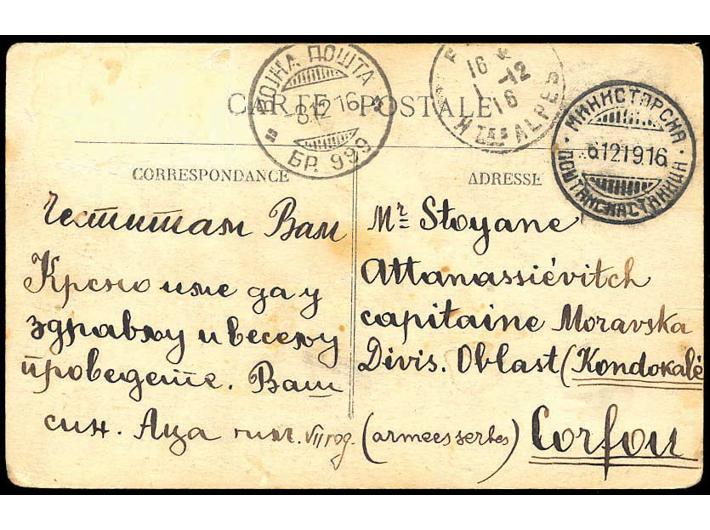 ВОЈНА ПОШТА
8.12 16
БР. 999
16 12
16
Htes ALPES
МИНИСТАРСКА
6.12.19.16
ПОШТАНСКА СТАНИЦА
CARTE POSTALE
CORRESPONDANCE
Честитам Вам
Крсно име да у
здрављу и весељу
проведете. Ваш
син. Аца VII год.
ADRESSE
Mr Stoyane
Attanassiévitch
capitaine Moravska
Divis. Oblast (Kondokalé
(armees serbes) Corfou